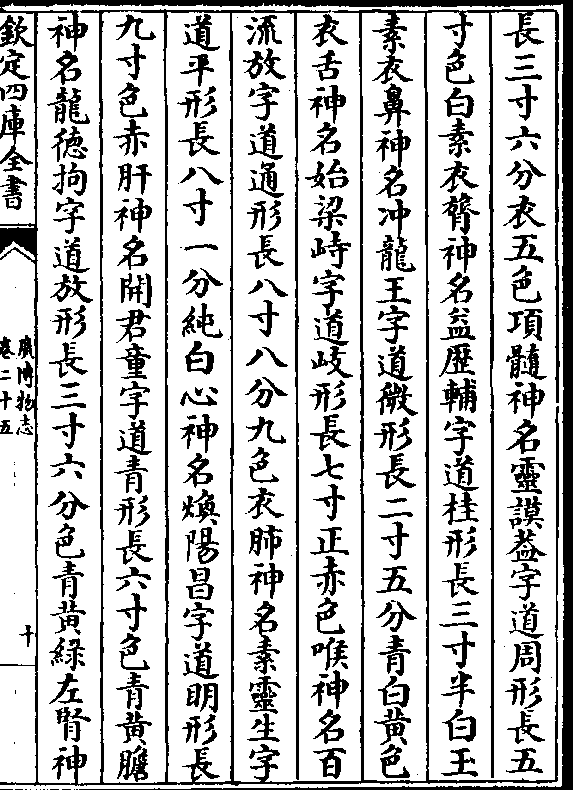 長三寸六分衣五色項髓神名靈謨葢字道周形長五
寸色白素衣膂神名益歴輔字道柱形長三寸半白玉
素衣鼻神名冲龍王字道微形長二寸五分青白黄色
衣舌神名始梁峙字道岐形長七寸正赤色喉神名百
流放字道通形長八寸八分九色衣肺神名素靈生字
道平形長八寸一分純白心神名煥陽昌字道明形長
九寸色赤肝神名開君童字道青形長六寸色青黄膽
神名龍徳拘字道放形長三寸六分色青黄綠左腎神
欽定四庫全書
廣博物志
卷二十五
十